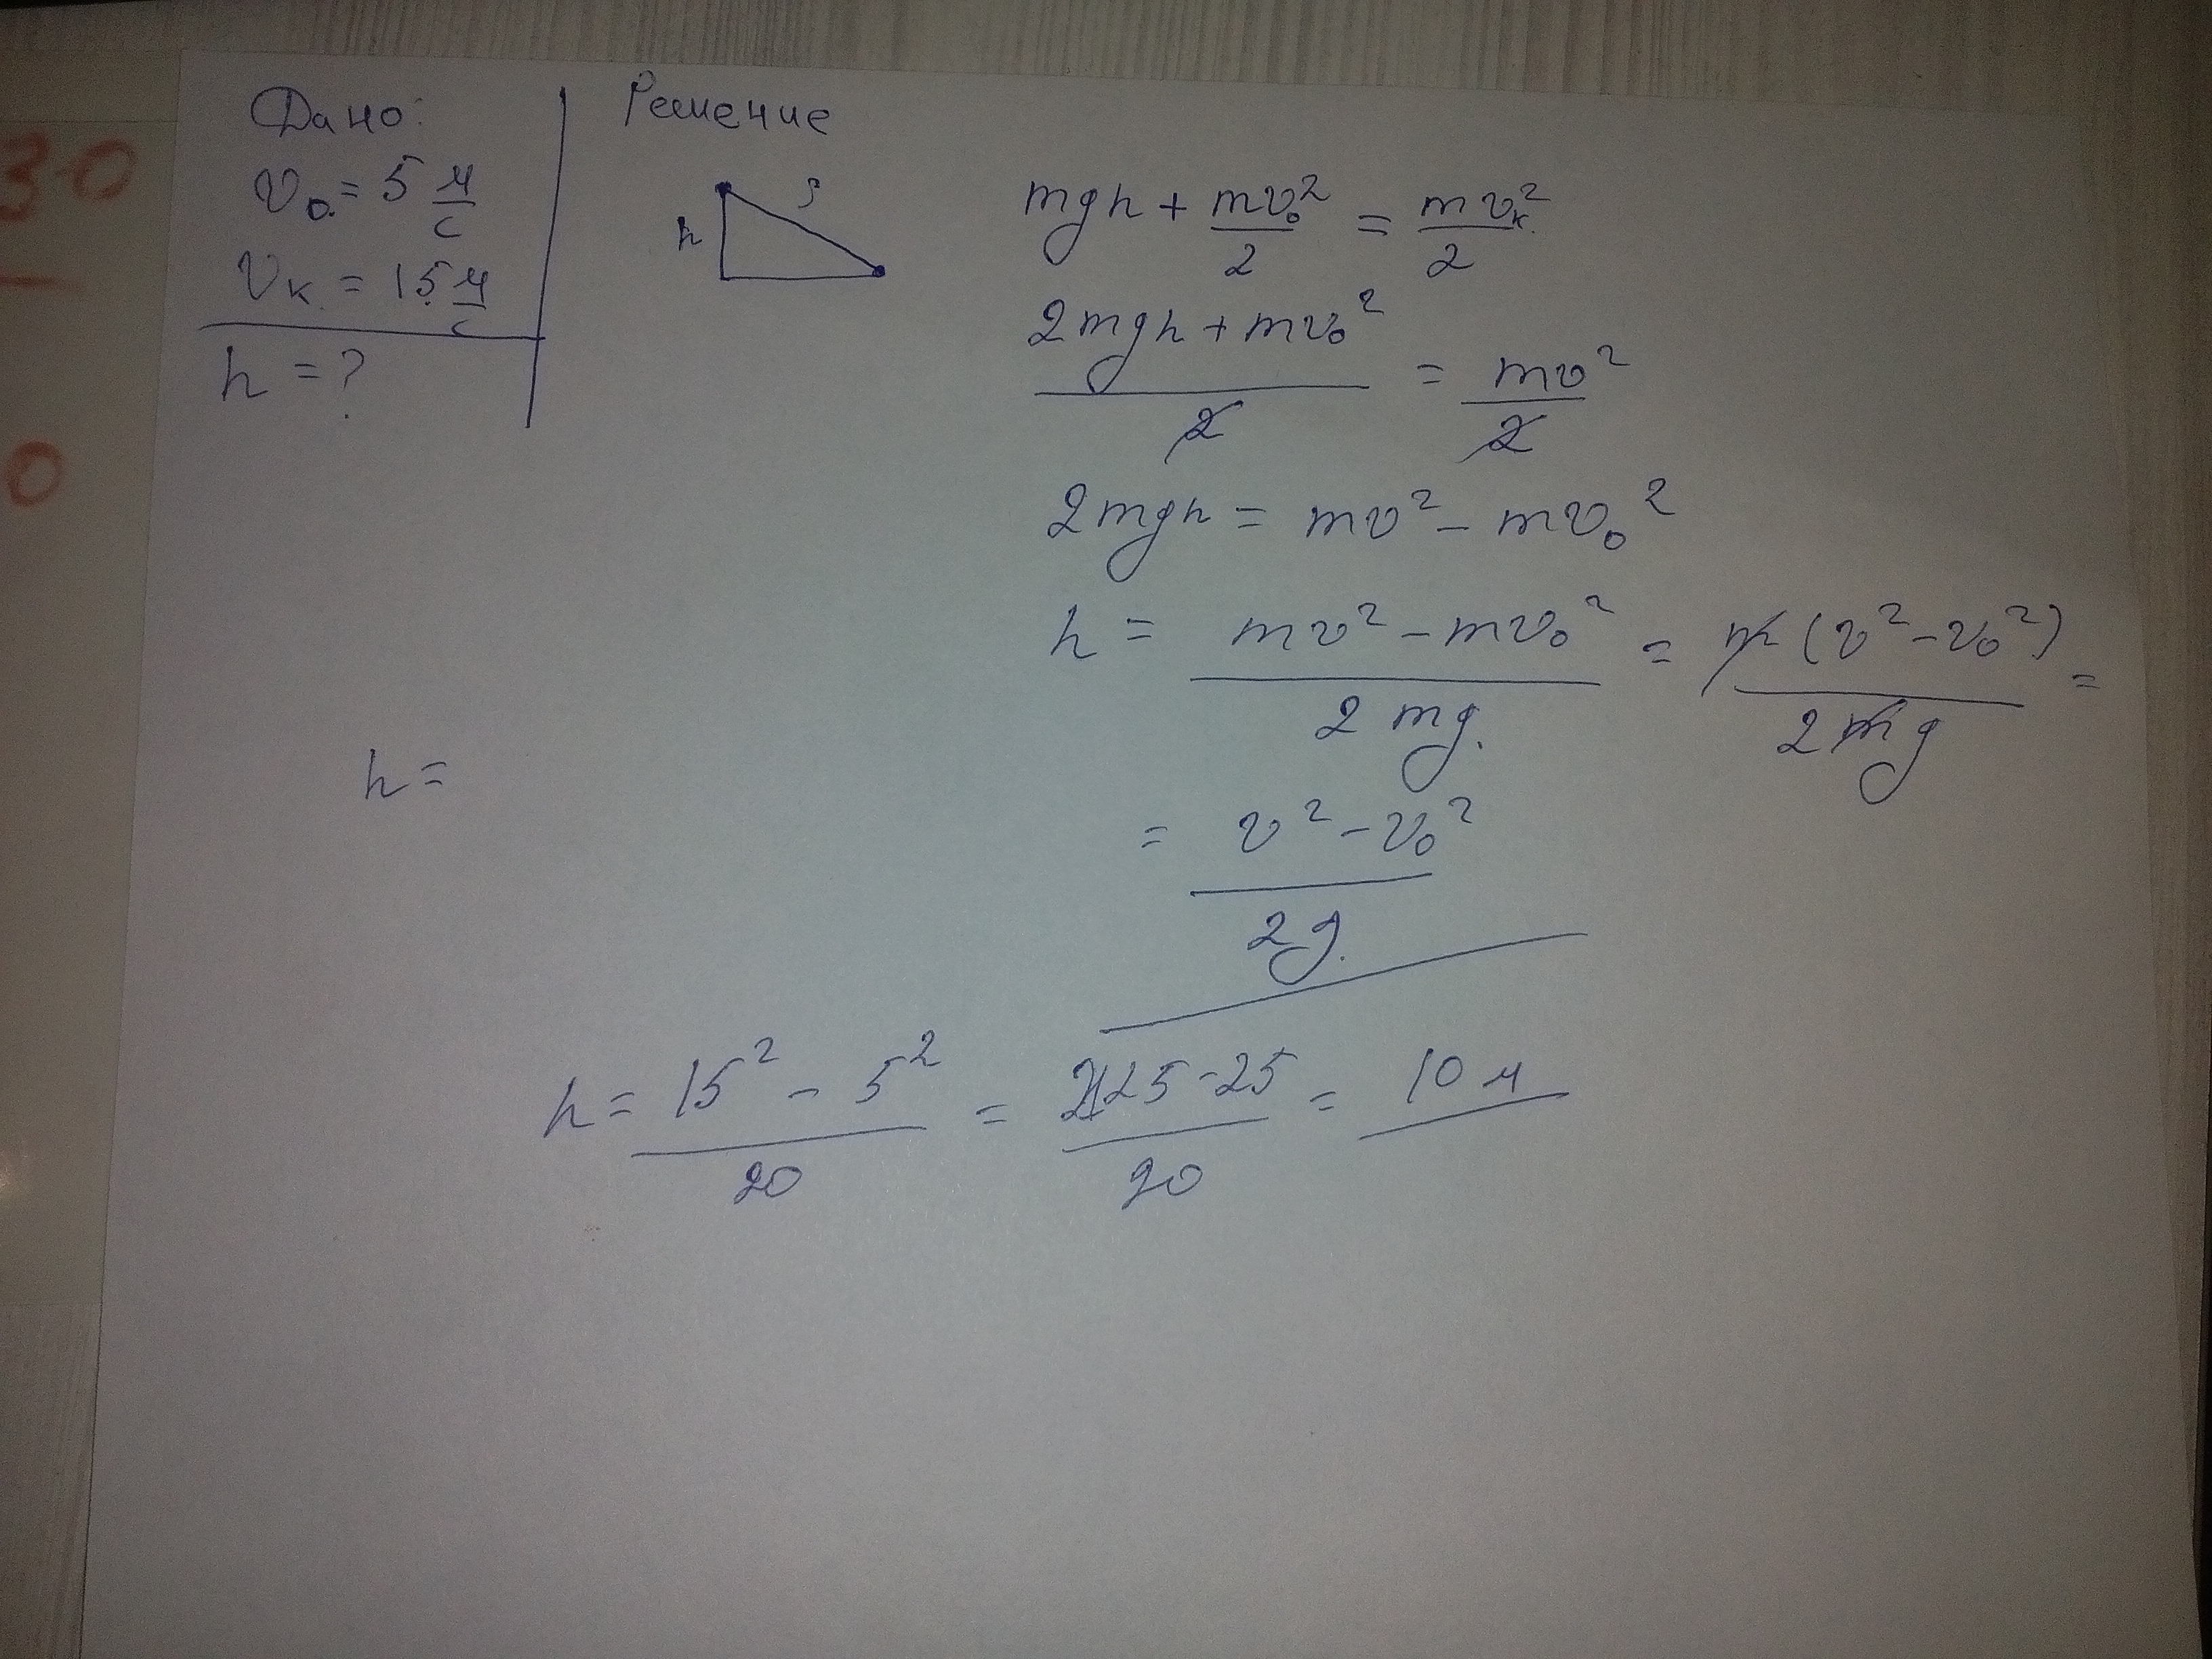 30
0
Дано:
v₀ = 5 м/с
vк = 15 м/с
h = ?
Решение
h
S
mgh + mv₀²/2 = mvк²/2
(2mgh + mv₀²)/2 = mv²/2
2mgh = mv² - mv₀²
h = (mv² - mv₀²)/(2mg) = m(v² - v₀²)/(2mg) =
h =
= (v² - v₀²)/(2g)
h = (15² - 5²)/20 = (225 - 25)/20 = 10 м